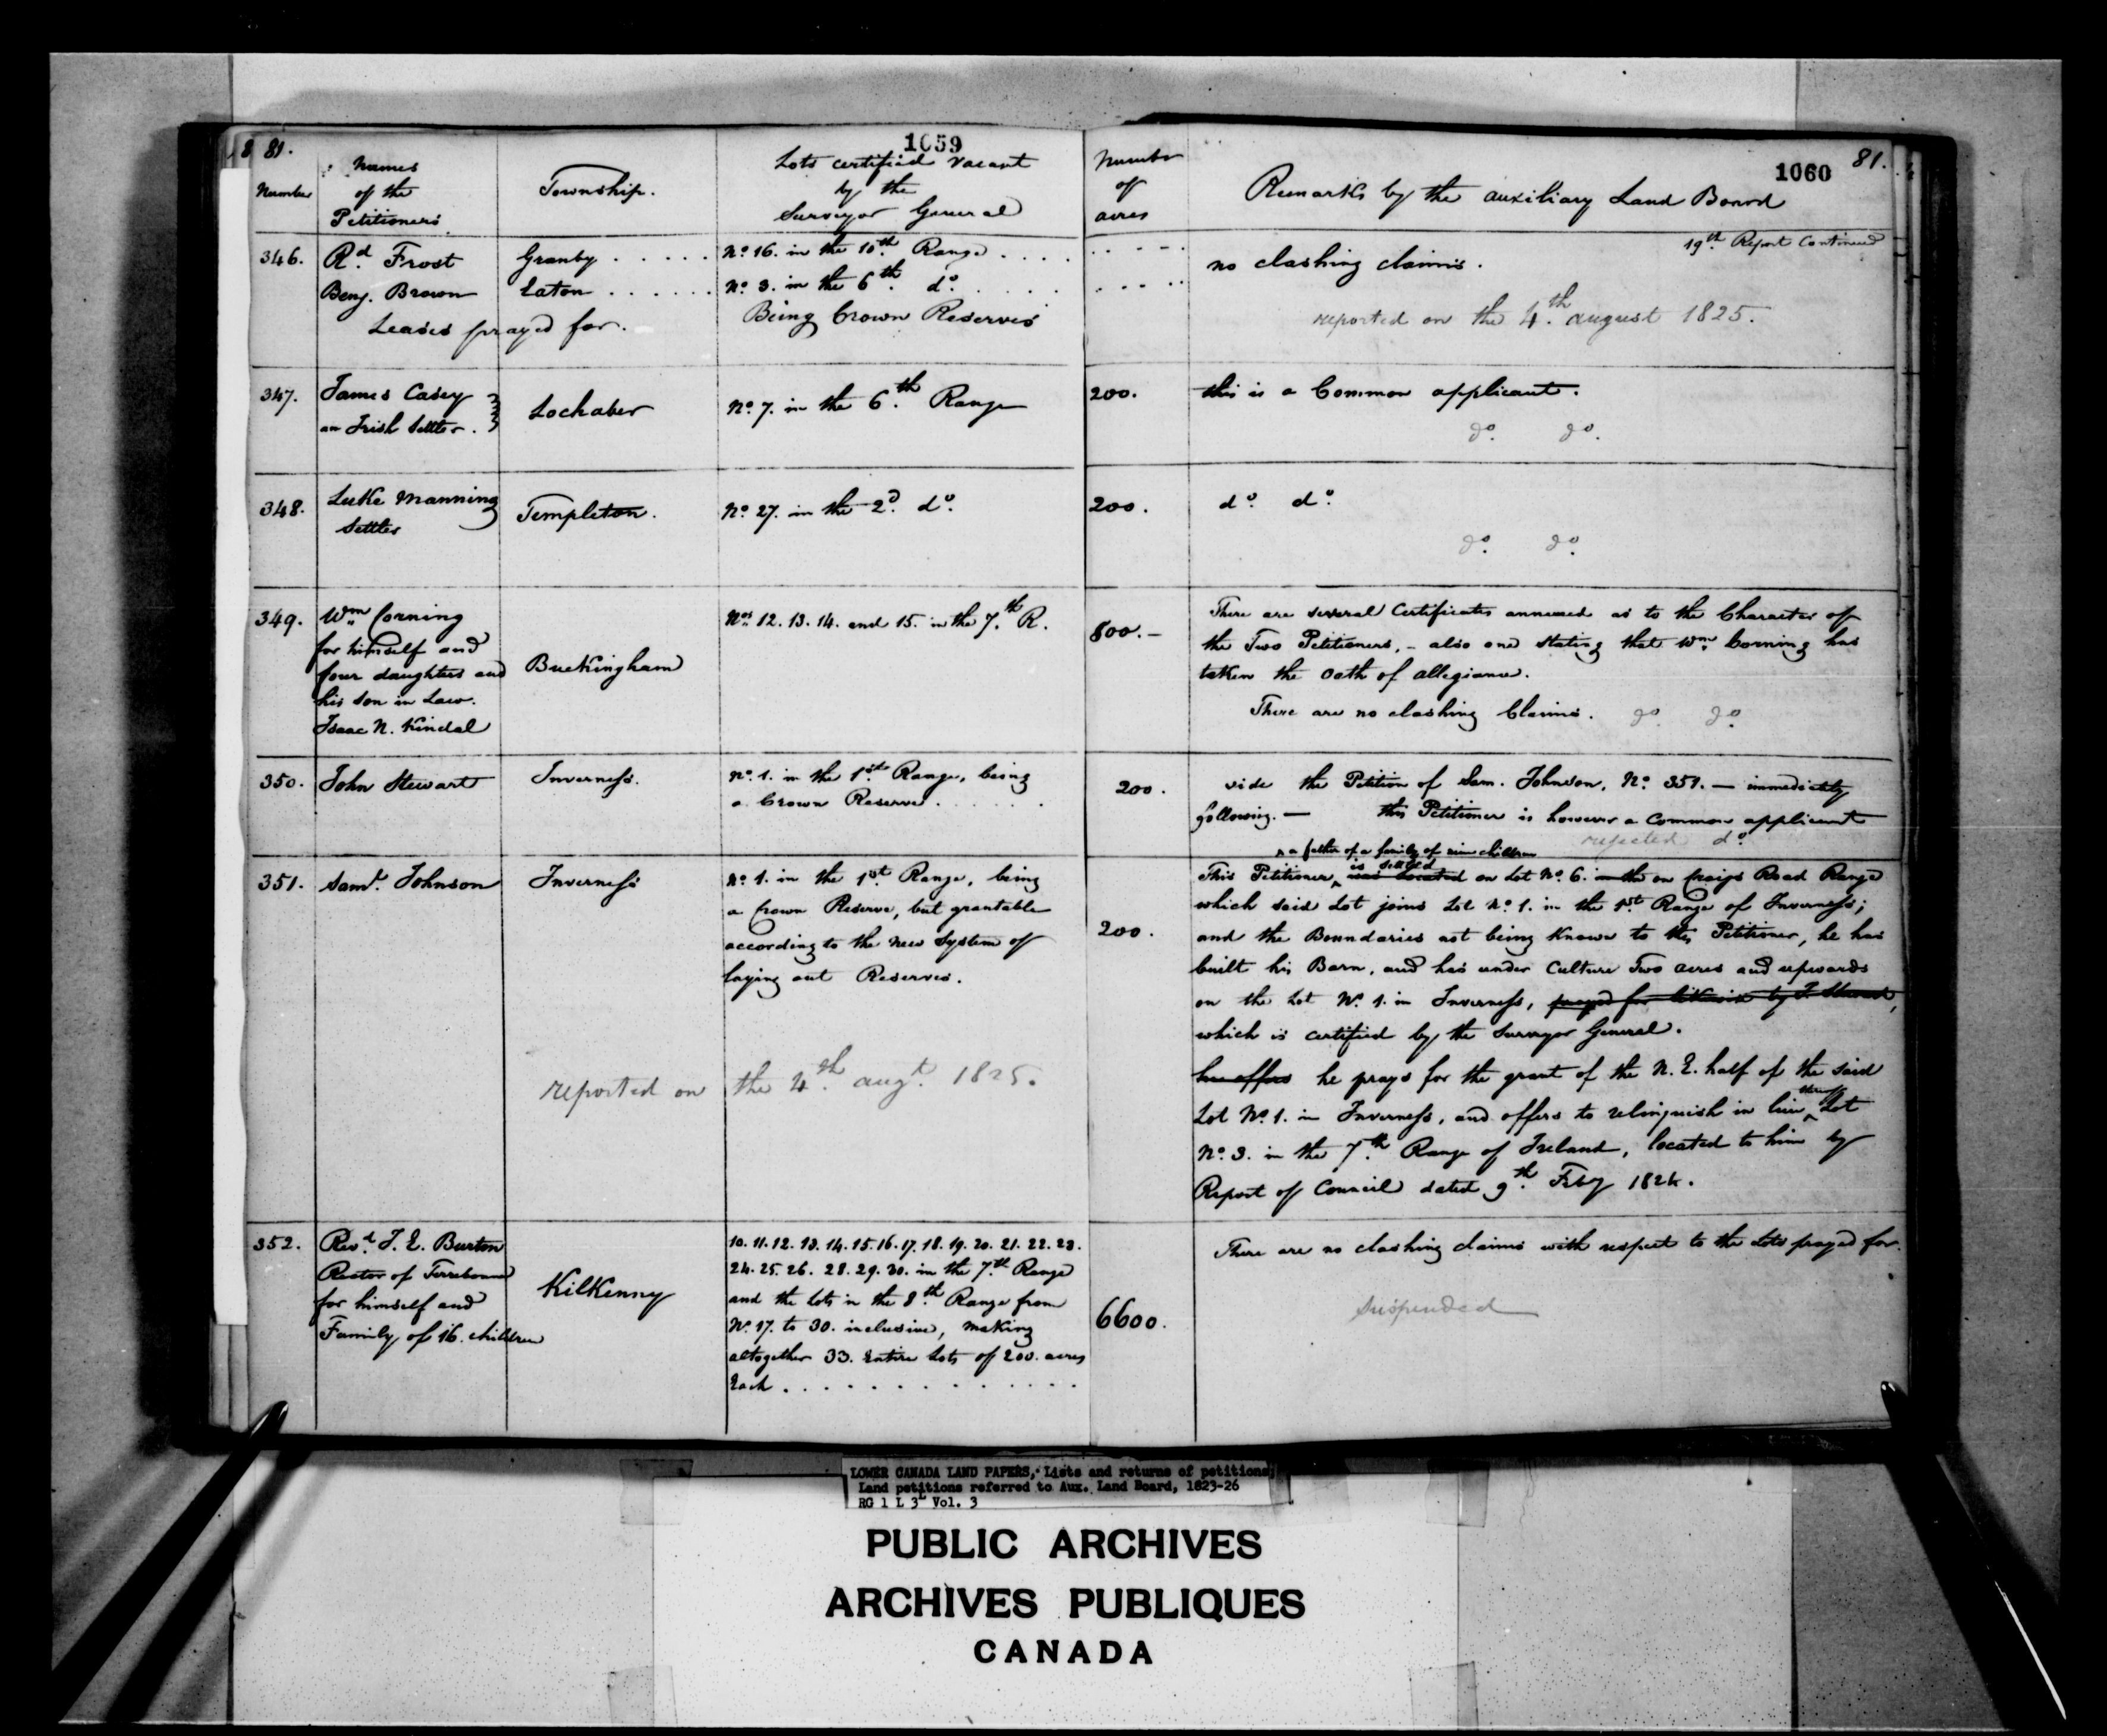 81.
1059
Number
Names
of the
Petitioners
Township.
Lots certified vacant
by the
Surveyor General
346.
Rd. Frost
Granby . . . . .
No. 16. in the 10th. Range . . . .
Benj. Brown
Eaton . . . . . .
No. 3. in the 6th. do. . . . .
Leases prayed for.
Being Crown Reserves
347.
James Casey
an Irish Settler.
Lochaber
No. 7. in the 6th. Range
348.
Luke Manning
Settler
Templeton.
No. 27. in the 2d. do.
349.
Wm. Corning
for himself and
four daughters and
his son in Law.
Isaac N. Kindal
Buckingham
Nos. 12. 13. 14. and 15. in the 7th. R.
350.
John Stewart
Inverness.
No. 1. in the 1st. Range, being
a Crown Reserve . . . . . .
351.
Saml. Johnson
Inverness
No. 1. in the 1st. Range, being
a Crown Reserve, but grantable
according to the New System of
laying out Reserves.
reported on the 4th. augt. 1825.
352.
Revd. J. E. Burton
Rector of Terrebonne
for himself and
Family of 16. children
Kilkenny
10. 11. 12. 13. 14. 15. 16. 17. 18. 19. 20. 21. 22. 23.
24. 25. 26. 28. 29. 30. in the 7th. Range
and the Lots in the 8th. Range from
No. 17. to 30. inclusive, making
altogether 33. Entire Lots of 200. acres
Each . . . . . . . . . . . .
1060
81.
Number
of
acres
Remarks by the auxiliary Land Board
19th. Report Continued
. . . .
no clashing claims.
. . . .
reported on the 4th. august 1825.
200.
this is a Common applicant.
do. do.
200.
do. do.
do. do.
800.-
There are several Certificates annexed as to the Character of
the Two Petitioners, - also one stating that Wm. Corning has
taken the Oath of allegiance.
There are no clashing Claims. do. do.
200.
vide the Petition of Sam. Johnson, No. 351. — immediately
following. — this Petitioner is however a Common applicant
rejected do.
a father of a family of nine children
is settled
200.
This Petitioner, was located on Lot No. 6. in the on Craigs Road Range
which said Lot joins Lot No. 1. in the 1st. Range of Inverness;
and the Boundaries not being known to this Petitioner, he has
built his Barn, and has under Culture Two acres and upwards
on the Lot No. 1. in Inverness, prayed for likewise by J. Stewart,
which is certified by the Surveyor General.
he offers he prays for the grant of the N. E. half of the said
Lot No. 1. in Inverness, and offers to relinquish in lieu thereof Lot
No. 3. in the 7th. Range of Ireland, located to him by
Report of Council dated 9th. Feby 1824.
6600.
There are no clashing claims with respect to the Lots prayed for.
Suspended
LOWER CANADA LAND PAPERS, Lists and returns of petitions;
Land petitions referred to Aux. Land Board, 1823-26
RG 1 L 3L Vol. 3
PUBLIC ARCHIVES
ARCHIVES PUBLIQUES
CANADA